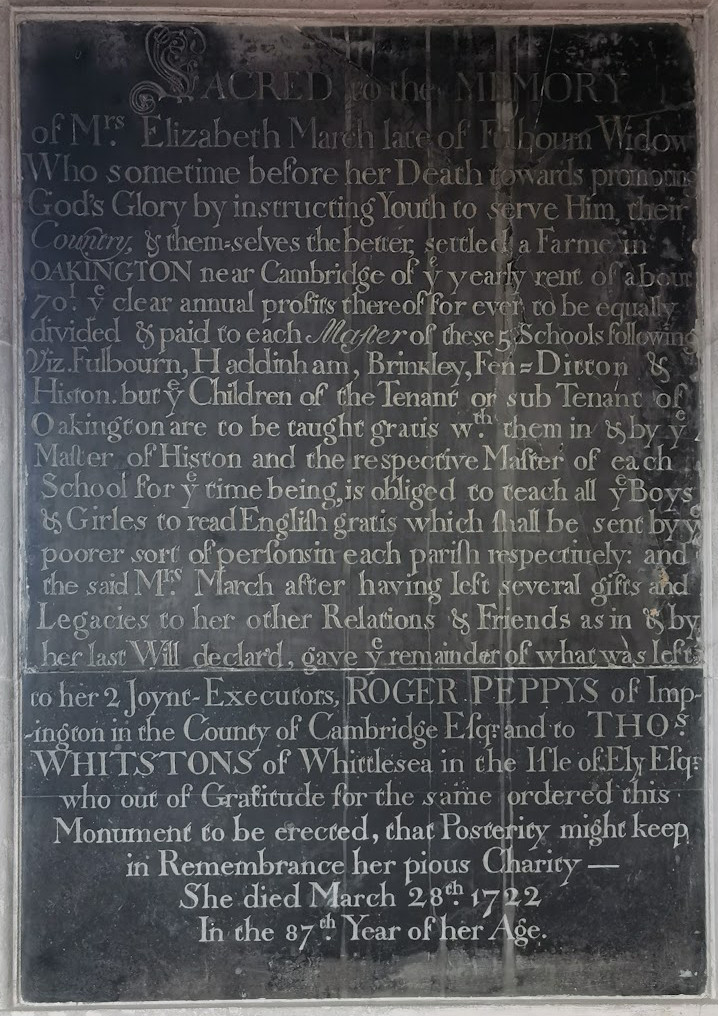 SACRED to the MEMORY
of Mrs. Elizabeth March late of Fulbourn Widow
Who sometime before her Death towards promoting
God's Glory by instructing Youth to serve Him, their
Country, & them=selves the better, settled a Farme in
OAKINGTON near Cambridge of ye yearly rent of about
70l. ye clear annual profits thereof for ever to be equally
divided & paid to each Maſter of these 5 Schools following
Viz. Fulbourn, Haddinham, Brinkley, Fen=Ditton &
Histon. but ye Children of the Tenant or sub Tenant of
Oakington are to be taught gratis wth. them in & by ye
Maſter of Histon and the respective Maſter of each
School for ye time being, is obliged to teach all ye Boys
& Girles to read Engliſh gratis which ſhall be sent by ye
poorer sort of perſons in each pariſh respectiuely: and
the said Mrs. March after having left several gifts and
Legacies to her other Relations & Friends as in & by
her last Will declar'd, gave ye remainder of what was left
to her 2 Joynt-Executors, ROGER PEPPYS of Imp-
-ington in the County of Cambridge Eſqr. and to THOs.
WHITSTONS of Whittlesea in the Iſle of Ely Eſqr.
who out of Gratitude for the same ordered this
Monument to be erected, that Posterity might keep
in Remembrance her pious Charity —
She died March 28th. 1722
In the 87th. Year of her Age.